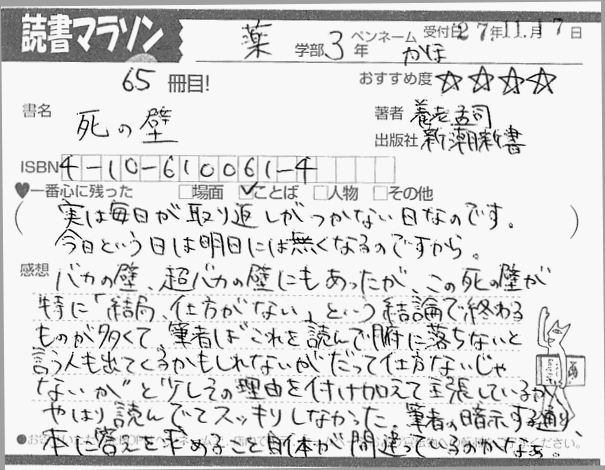 読書マラソン
薬 学部 3 年 ペンネーム かほ 受付日 27年 11.月 17日
65 冊目!
おすすめ度 ☆☆☆☆
書名 死の壁
著者 養老孟司
出版社 新潮新書
ISBN 4-10-610061-4
♥一番心に残った □場面 ☑ことば □人物 □その他
(実は毎日が取り返しがつかない日なのです。
今日という日は明日には無くなるのですから。)
感想 バカの壁、超バカの壁にもあったが、この死の壁が
特に「結局、仕方がない」という結論で終わる
ものが多くて、筆者は"これを読んで腑に落ちないと
言う人も出てくるかもしれないがだって仕方ないじゃ
ないか"と少しその理由を付け加えて主張しているが
やはり読んでてスッキリしなかった。筆者の暗示する通り、
本に答えを求めること自体が間違っているのかなぁ。